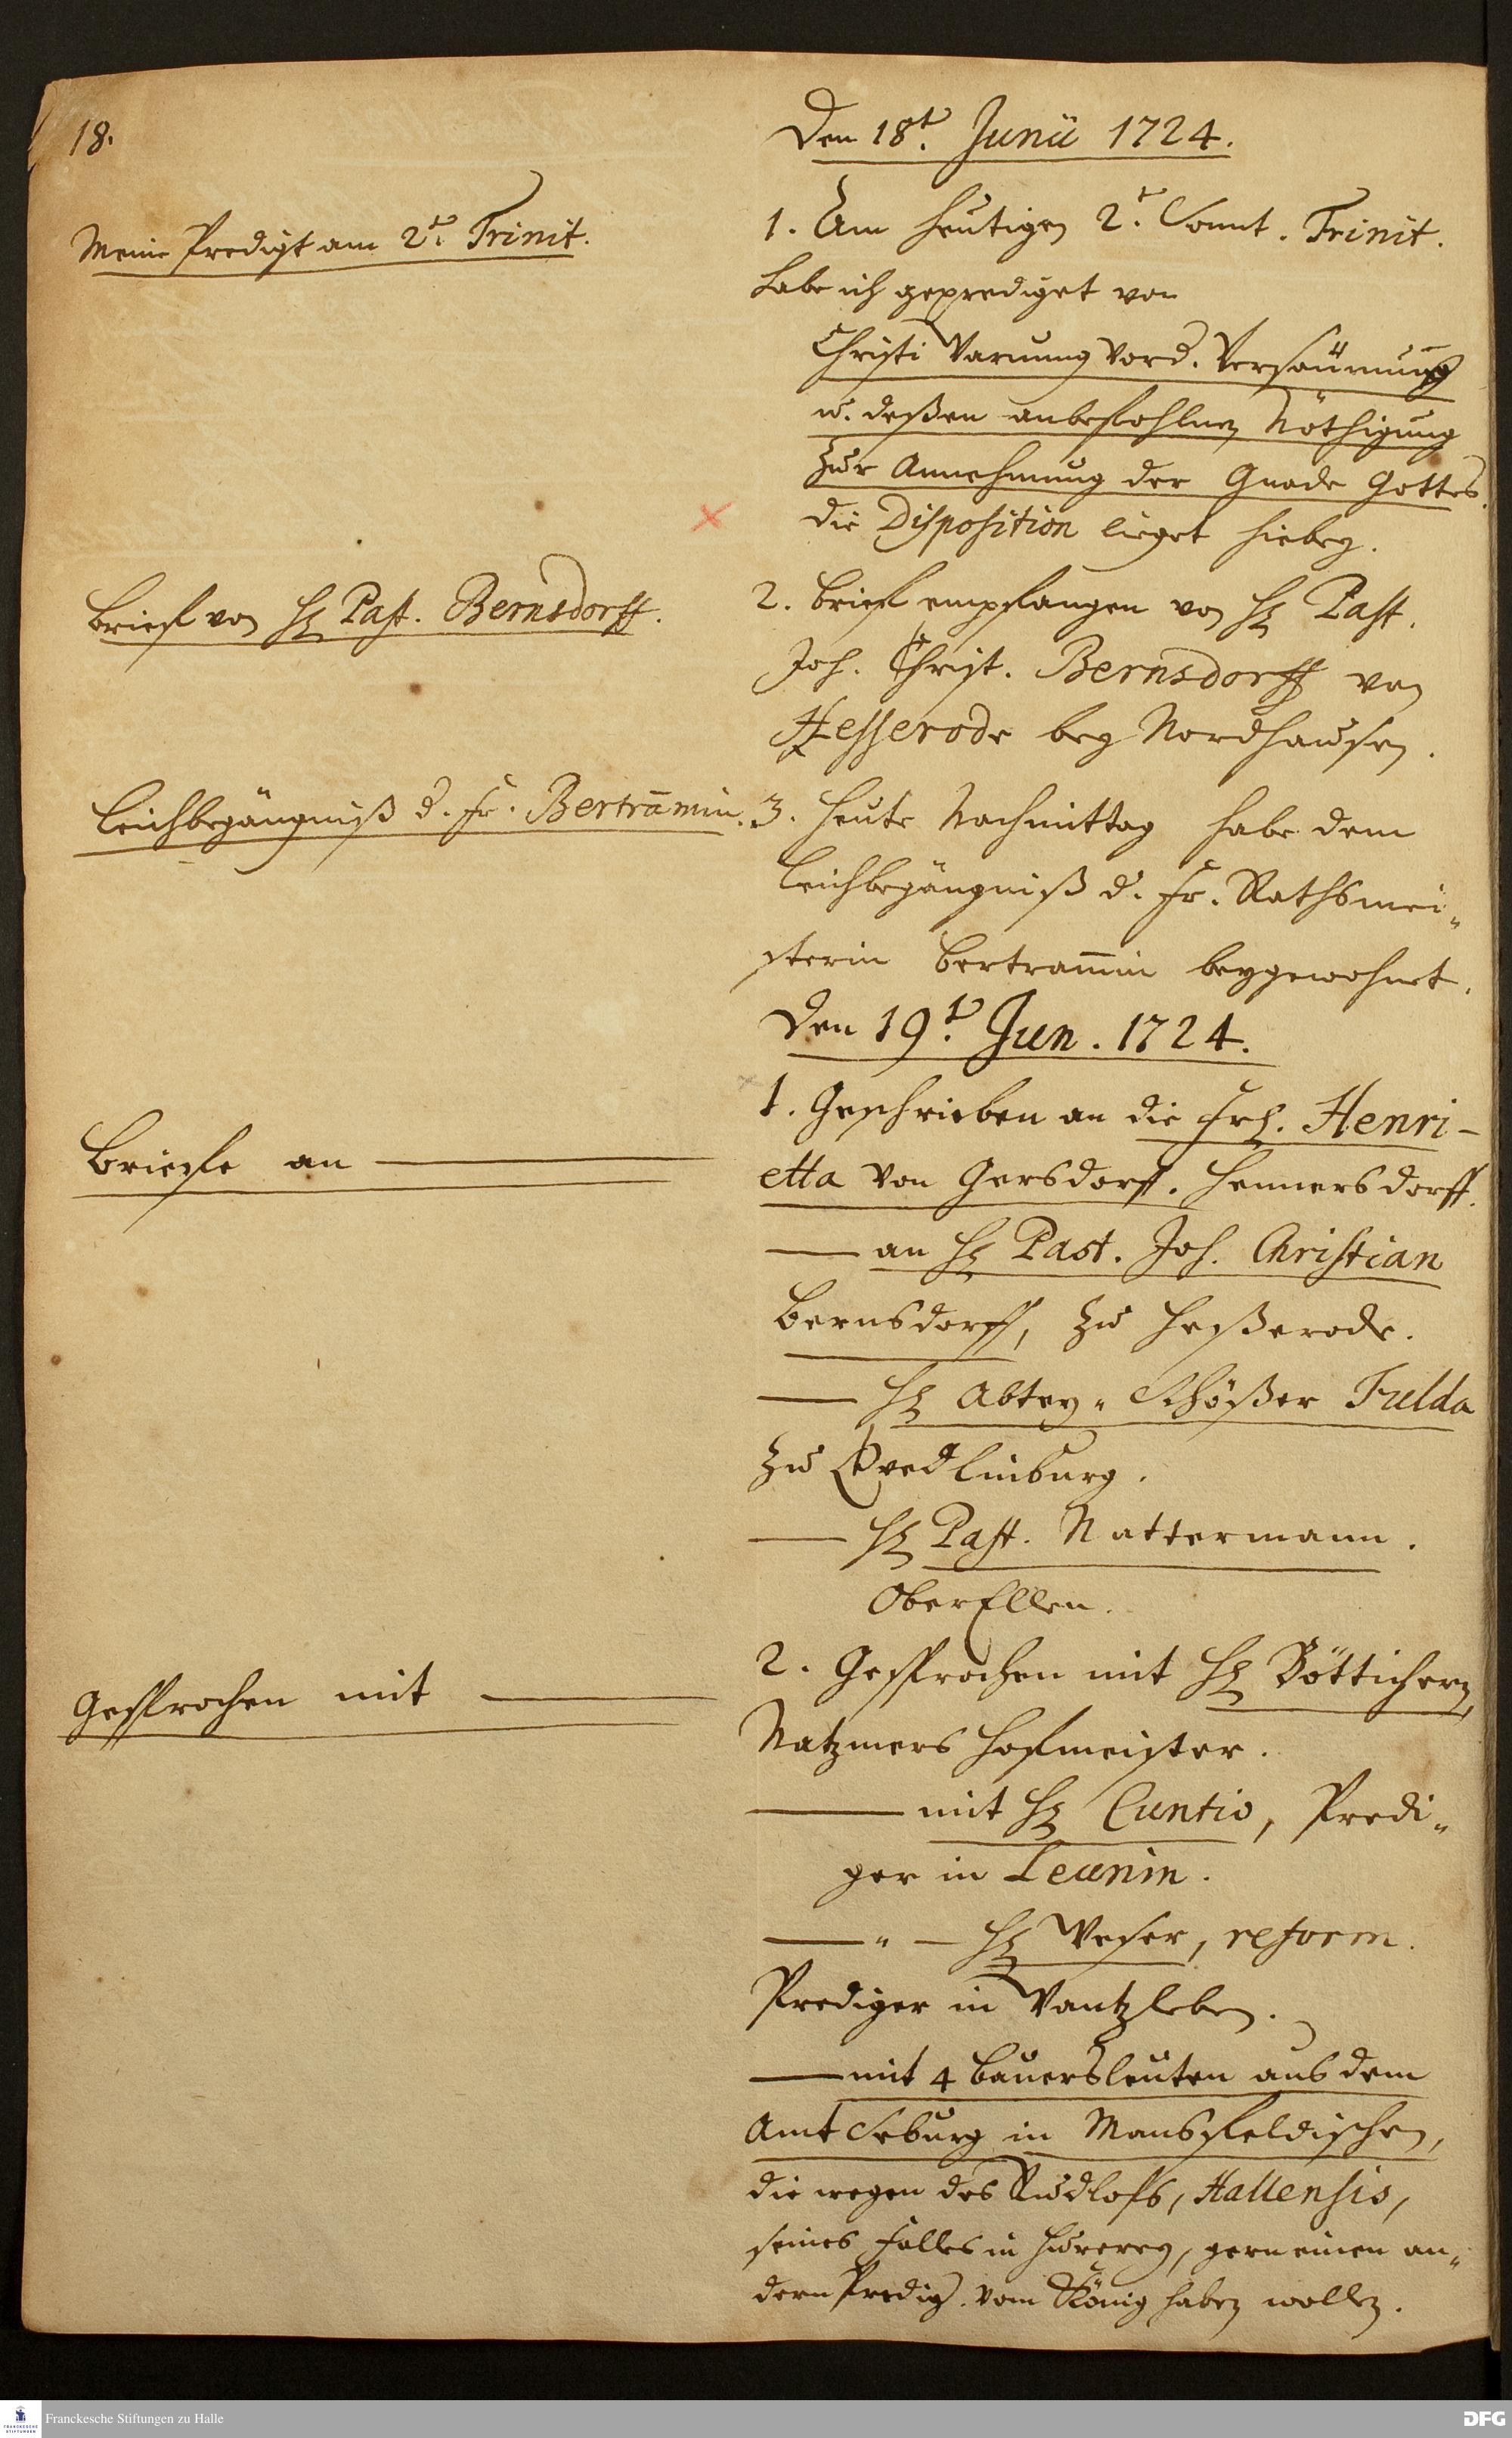 18.
Den 18t. Junii 1724.
Meine Predigt am 2t. Trinit.
1. Am heutigen 2t. Sonnt. Trinit.
habe ich geprediget von
Christi Warnung vor d. Versäumung
u. deßen anbefohlnen Nöthigung
zur Annehmung der Gnade Gottes.
die Disposition lieget hiebey.
Brief von H. Past. Bernsdorff.
2. Brief empfangen von H. Past.
Joh. Christ. Bernsdorff von
Hesserode bey Nordhausen.
Leichbegängniß d. Fr. Bertramin.
3. Heute Nachmittag habe dem
Leichbegängniß d. Fr. Rathsmei-
sterin Bertramin beygewohnet.
Den 19t. Jun. 1724.
Briefe an
1. Geschrieben an die Frl. Henri-
etta von Gersdorff. Hennersdorff.
— an H. Past. Joh. Christian
Bernsdorff, zu Heßerode.
— H. Abtey-Schößer Fulda
zu Qvedlinburg.
— H. Past. Nattermann.
OberEllen.
Gesprochen mit
2. Gesprochen mit H. Böttichern,
Natzmers Hofmeister.
— mit H. Cuntio, Predi-
ger in Leunin.
— " — H. Weser, reform.
Prediger in Wantzleben.
— mit 4 Bauersleuten aus dem
Amt Seburg in Mansfeldischen,
die wegen des Rudlofs, Hallensis,
seines Falles in Hurerey, gern einen an-
dern Predig. vom König haben wollen.
Franckesche Stiftungen zu Halle
FRANCKESCHE
STIFTUNGEN
DFG